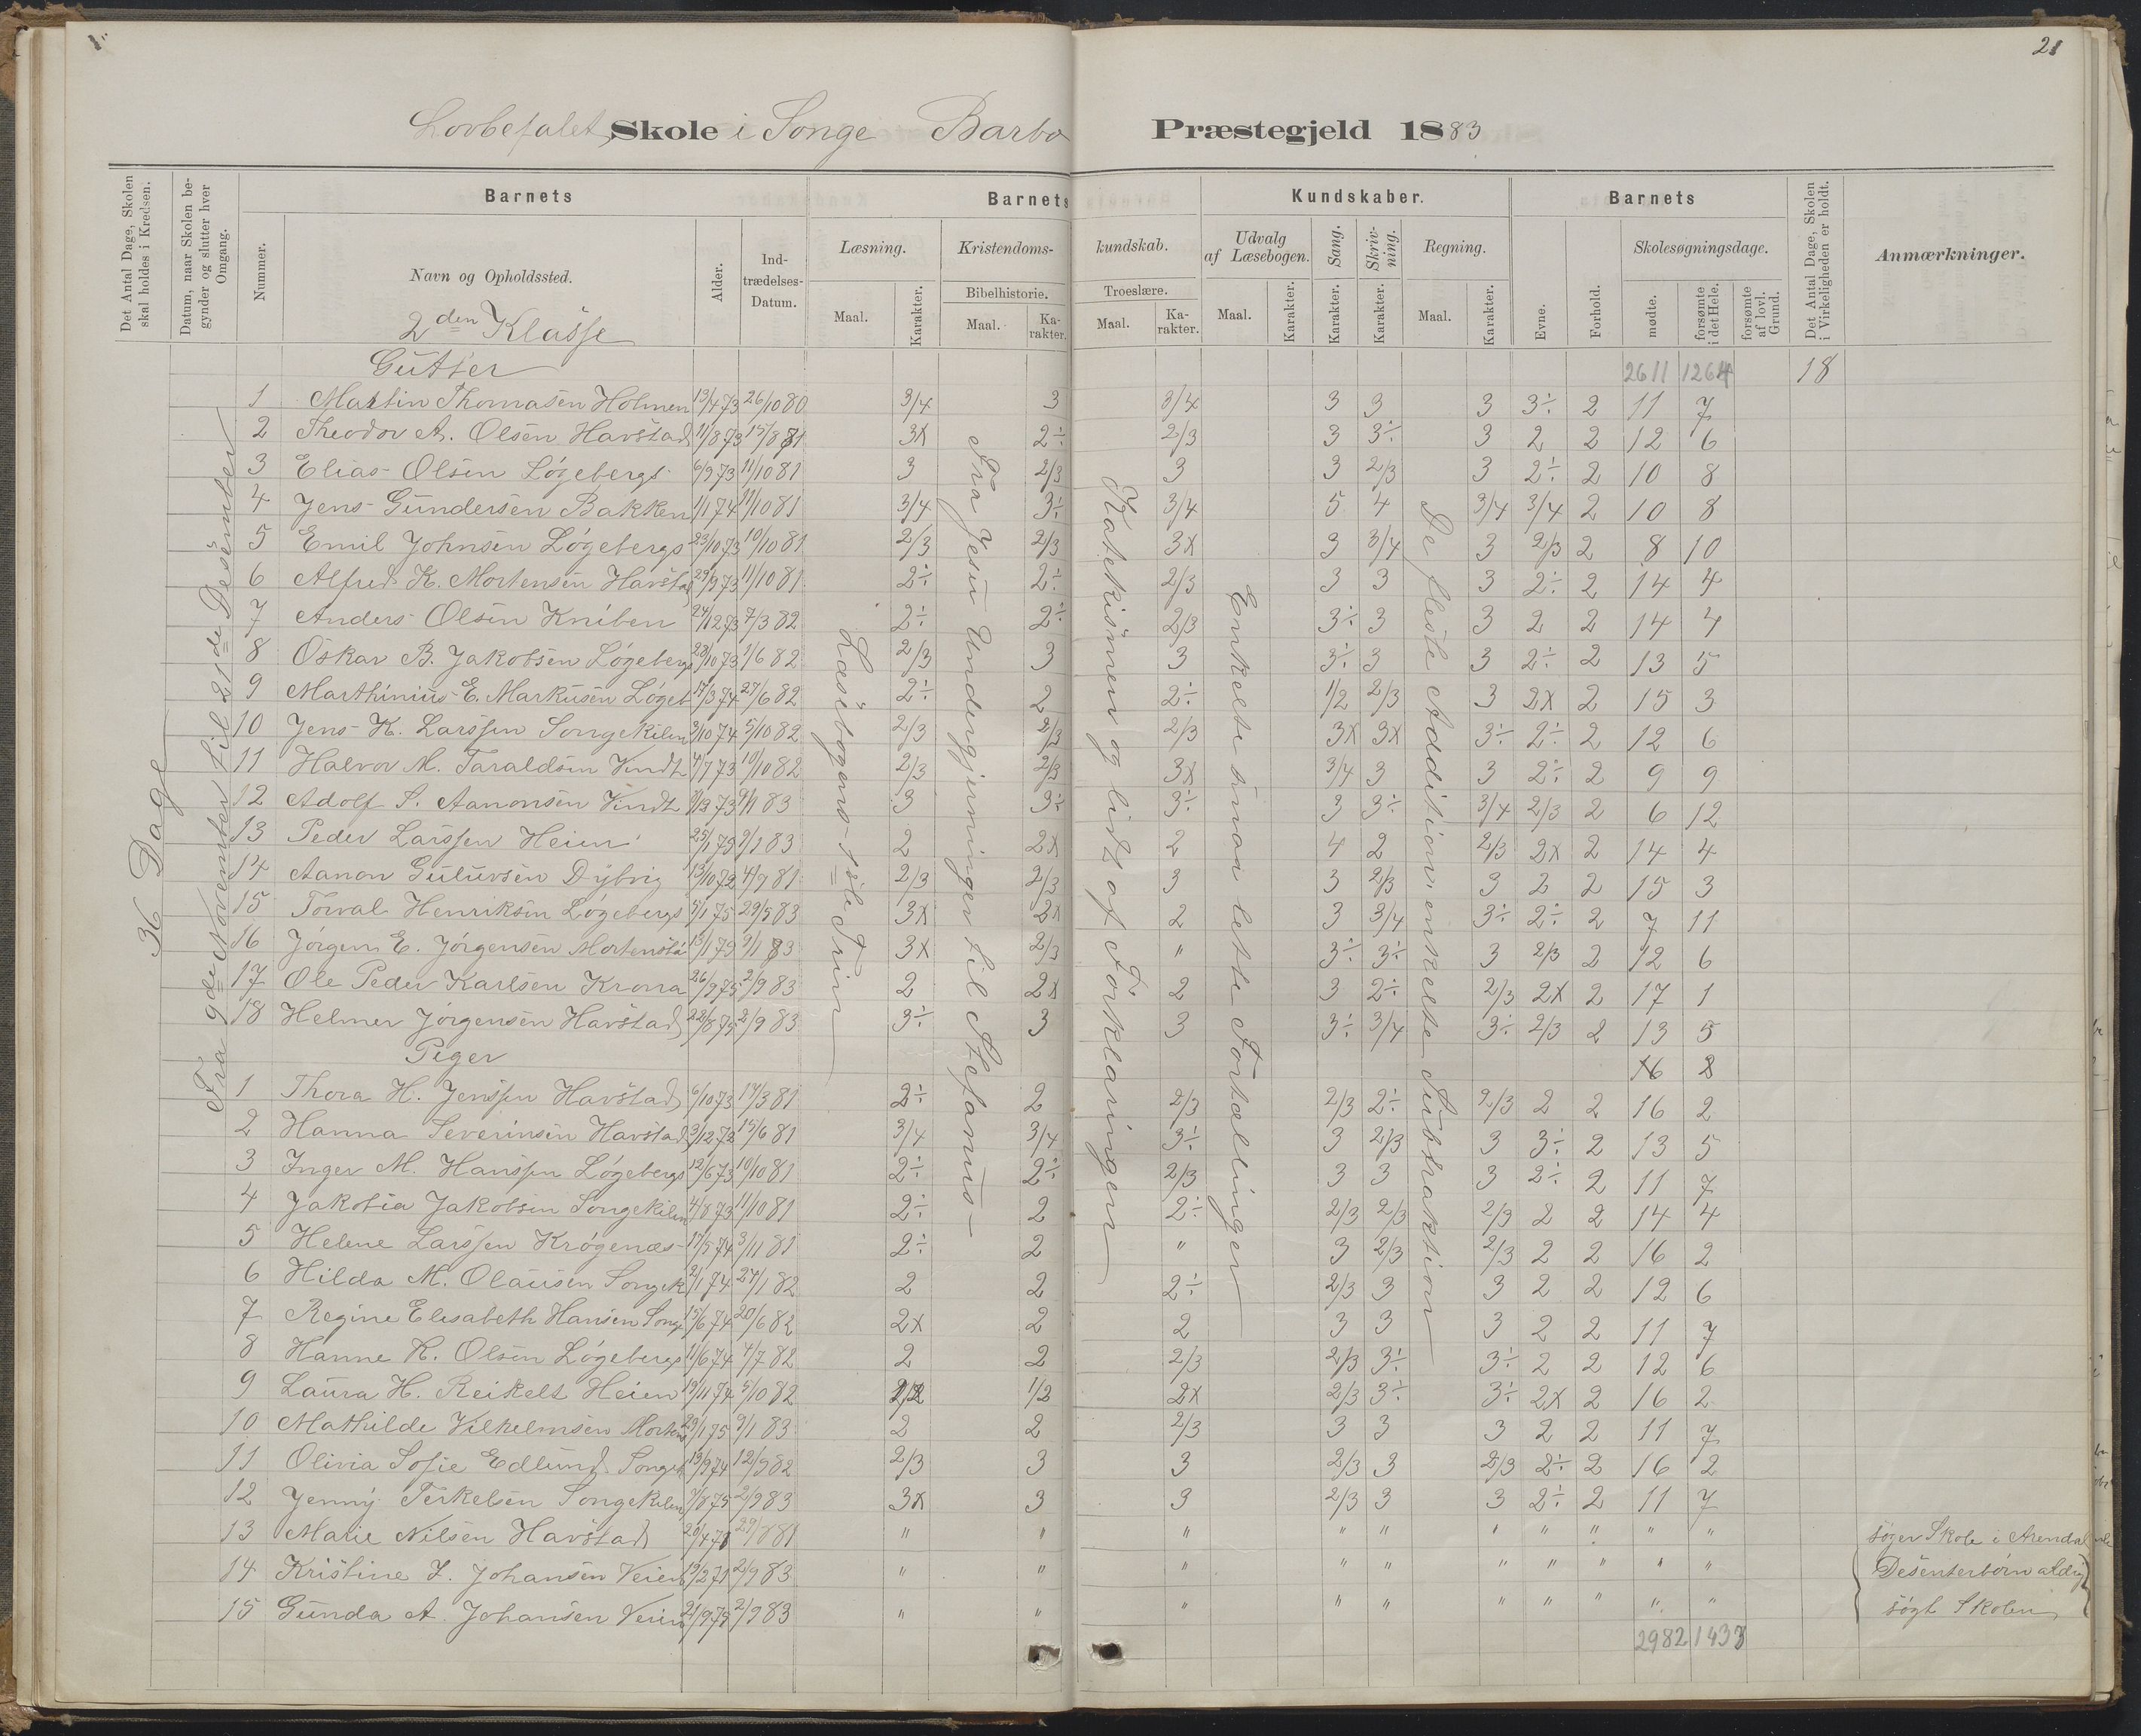 21
Lovbefalet Skole i Songe Barbo Præstegjeld 1883
Det Antal Dage, Skolen skal holdes i Kredsen.
Datum, naar Skolen begynder og slutter hver Omgang.
Nummer.
Barnets
Navn og Opholdssted.
Alder.
Indtrædelses-Datum.
Barnets Kundskaber.
Læsning.
Maal.
Karakter.
Kristendomskundskab.
Bibelhistorie.
Maal.
Karakter.
Troeslære.
Maal.
Karakter.
Udvalg af Læsebogen.
Maal.
Karakter.
Sang.
Karakter.
Skrivning.
Karakter.
Regning.
Maal.
Karakter.
Barnets
Evne.
Forhold.
Skolesøgningsdage.
mødte.
forsømte i det Hele.
forsømte af lovl. Grund.
Det Antal Dage, Skolen i Virkeligheden er holdt.
Anmærkninger.
36 Dage
Fra 9de November til 21de Desember
Læsebogens 1ste Trin
Fra Jesu Undergjerninger til Stefanus
Katekismen og lidt af Forklaringen
Enkelte smaa lette Fortællinger
De fleste Addition enkelte Subtraktion
2den Klasse
Gutter 2611 1264 18
1 Martin Thomasen Holmen 13/4 73 26/10 80 3/4 3 3/4 3 3 3 3÷ 2 11 7
2 Theodor A. Olsen Havstad 11/8 73 15/8 81 3x 2÷ 2/3 3 3÷ 3 2 2 12 6
3 Elias Olsen Løgebergs 6/9 73 11/10 81 3 2/3 3 3 2/3 3 2÷ 2 10 8
4 Jens Gundersen Bakken 1/1 74 11/10 81 3/4 3÷ 3/4 5 4 3/4 3/4 2 10 8
5 Emil Johnsen Løgebergs 23/10 73 10/10 81 2/3 2/3 3x 3 3/4 3 2/3 2 8 10
6 Alfred K. Mortensen Havstad 29/9 73 11/10 81 2÷ 2÷ 2/3 3 3 3 2÷ 2 14 4
7 Anders Olsen Kniben 24/12 73 7/3 82 2÷ 2÷ 2/3 3÷ 3 3 2 2 14 4
8 Oskar B. Jakobsen Løgebergs 28/10 73 1/6 82 2/3 3 3 3÷ 3 3 2÷ 2 13 5
9 Marthinius E. Markusen Løgeb 17/3 74 27/6 82 2÷ 2 2÷ 1/2 2/3 3 2x 2 15 3
10 Jens K. Larssen Songekilen 3/10 74 5/10 82 2/3 2/3 2/3 3x 3x 3÷ 2÷ 2 12 6
11 Halvor M. Taraldsen Vindt 4/7 73 10/10 82 2/3 2/3 3x 3/4 3 3 2÷ 2 9 9
12 Adolf S. Aanonsen Vindt 73 9/1 83 3 3÷ 3÷ 3 3÷ 3/4 2/3 2 6 12
13 Peder Larssen Heien 25/1 73 9/1 83 2 2x 2 4 2 2/3 2x 2 14 4
14 Aanon Guluvsen Dybvig 13/10 72 4/9 81 2/3 2/3 3 3 2/3 3 2 2 15 3
15 Torval Henriksen Løgebergs 5/1 75 29/5 83 3x 2x 2 3 3/4 3÷ 2÷ 2 7 11
16 Jørgen E. Jørgensen 13/1 73 9/1 83 3x 2/3 " 3÷ 3÷ 3 2/3 2 12 6
17 Ole Peder Karlsen Krona 26/9 75 2/9 83 2 2x 2 3 2÷ 2/3 2x 2 17 1
18 Helmer Jørgensen Havstad 22/8 75 2/9 83 3÷ 3 3 3÷ 3/4 3÷ 2/3 2 13 5
Piger
1 Thora H. Jenssen Havstad 6/10 73 14/3 81 2÷ 2 2/3 2/3 2÷ 2/3 2 2 16 2
2 Hanna Severinsen Havstad 3/12 72 15/6 81 3/4 3/4 3÷ 3 2/3 3 3÷ 2 13 5
3 Inger M. Hanssen Løgebergs 12/6 73 10/10 81 2÷ 2÷ 2/3 3 3 3 2÷ 2 11 7
4 Jakobia Jakobsen Songekilen 4/8 73 11/10 81 2÷ 2 2÷ 2/3 2/3 2/3 2 2 14 4
5 Helene Larssen Krøgenæs 17/5 74 3/11 81 2÷ 2 " 3 2/3 2/3 2 2 16 2
6 Hilda M. Olausen Songek 2/1 74 24/1 82 2 2 2÷ 2/3 3 3 2 2 12 6
7 Regine Elisabeth Hansen Songe 15/6 74 20/6 82 2x 2 2 3 3 3 2 2 11 7
8 Hanne K. Olsen Løgebergs 11/6 74 4/7 82 2 2 2/3 2/3 3÷ 3÷ 2 2 12 6
9 Laura H. Reikelt Heien 19/11 74 5/10 82 1/2 1/2 2x 2/3 3÷ 3÷ 2x 2 16 2
10 Mathilde Vilhelmsen Mortens 29/1 75 9/1 83 2 2 2/3 3 3 3 2 2 11 7
11 Olivia Sofie Edlund Songek 19/9 74 12/9 82 2/3 3 3 2/3 3 2/3 2÷ 2 16 2
12 Jenny Terkelsen Songekilen 7/8 75 2/9 83 3x 3 3 2/3 3 3 2÷ 2 11 7
13 Marie Nilsen Havstad 20/4 71 29/8 81 " " " " " " " " " " søger Skole i Arendal
14 Kristine J. Johansen Veien 19/2 71 2/9 83 " " " " " " " " " " Desenterbørn aldrig
15 Gunda A. Johansen Veien 21/9 75 2/9 83 " " " " " " " " " " søgt Skolen
2982 1433